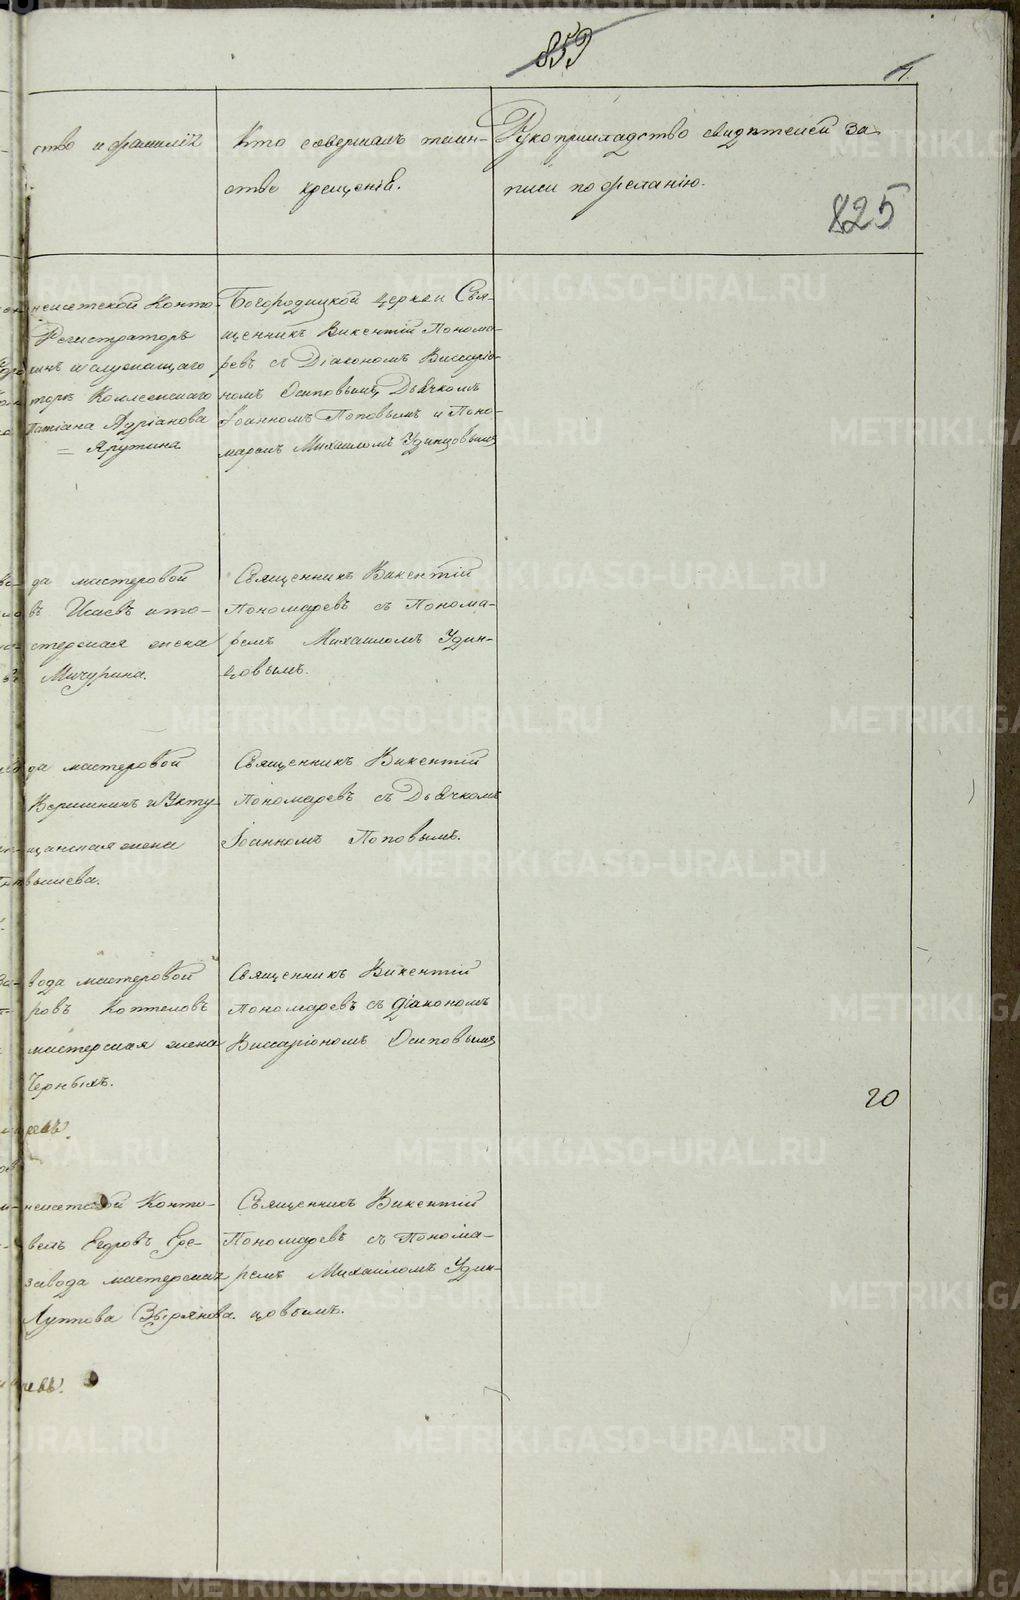 859
7.
ство и фамилія
Кто совершалъ таин-
ство крещенія.
Рукоприкладство свидѣтелей за
писи по желанію.
825
Регистраторъ
и служащаго
Коллежскаго
Татіана Адріанова
= Ярутина
Богородицкой церкви Свя-
щенникъ Викентій Понома-
ревъ съ Діакономъ Виссаріо-
номъ Осиповымъ, Дьячкомъ
Іоанномъ Поповымъ и Поно-
маремъ Михаиломъ Удинцовымъ
да мастеровой
въ Исаевъ и то-
стерская жена
Мичурина.
Священникъ Викентій
Пономаревъ съ Понома-
ремъ Михаиломъ Удин-
цовымъ.
да мастеровой
Вершининъ и Укту
щанская жена
вышева.
Священникъ Викентій
Пономаревъ съ Дьячкомъ
Іоанномъ Поповымъ.
вода мастеровой
ровъ Коптеловъ
мастерская жена
Черныхъ.
Священникъ Викентій
Пономаревъ съ Діакономъ
Виссаріономъ Осиповымъ
20
завода мастерская
Зырянова.
Священникъ Викентій
Пономаревъ съ Понома-
ремъ Михаиломъ Удин-
цовымъ.
METRIKI.GASO-URAL.RU